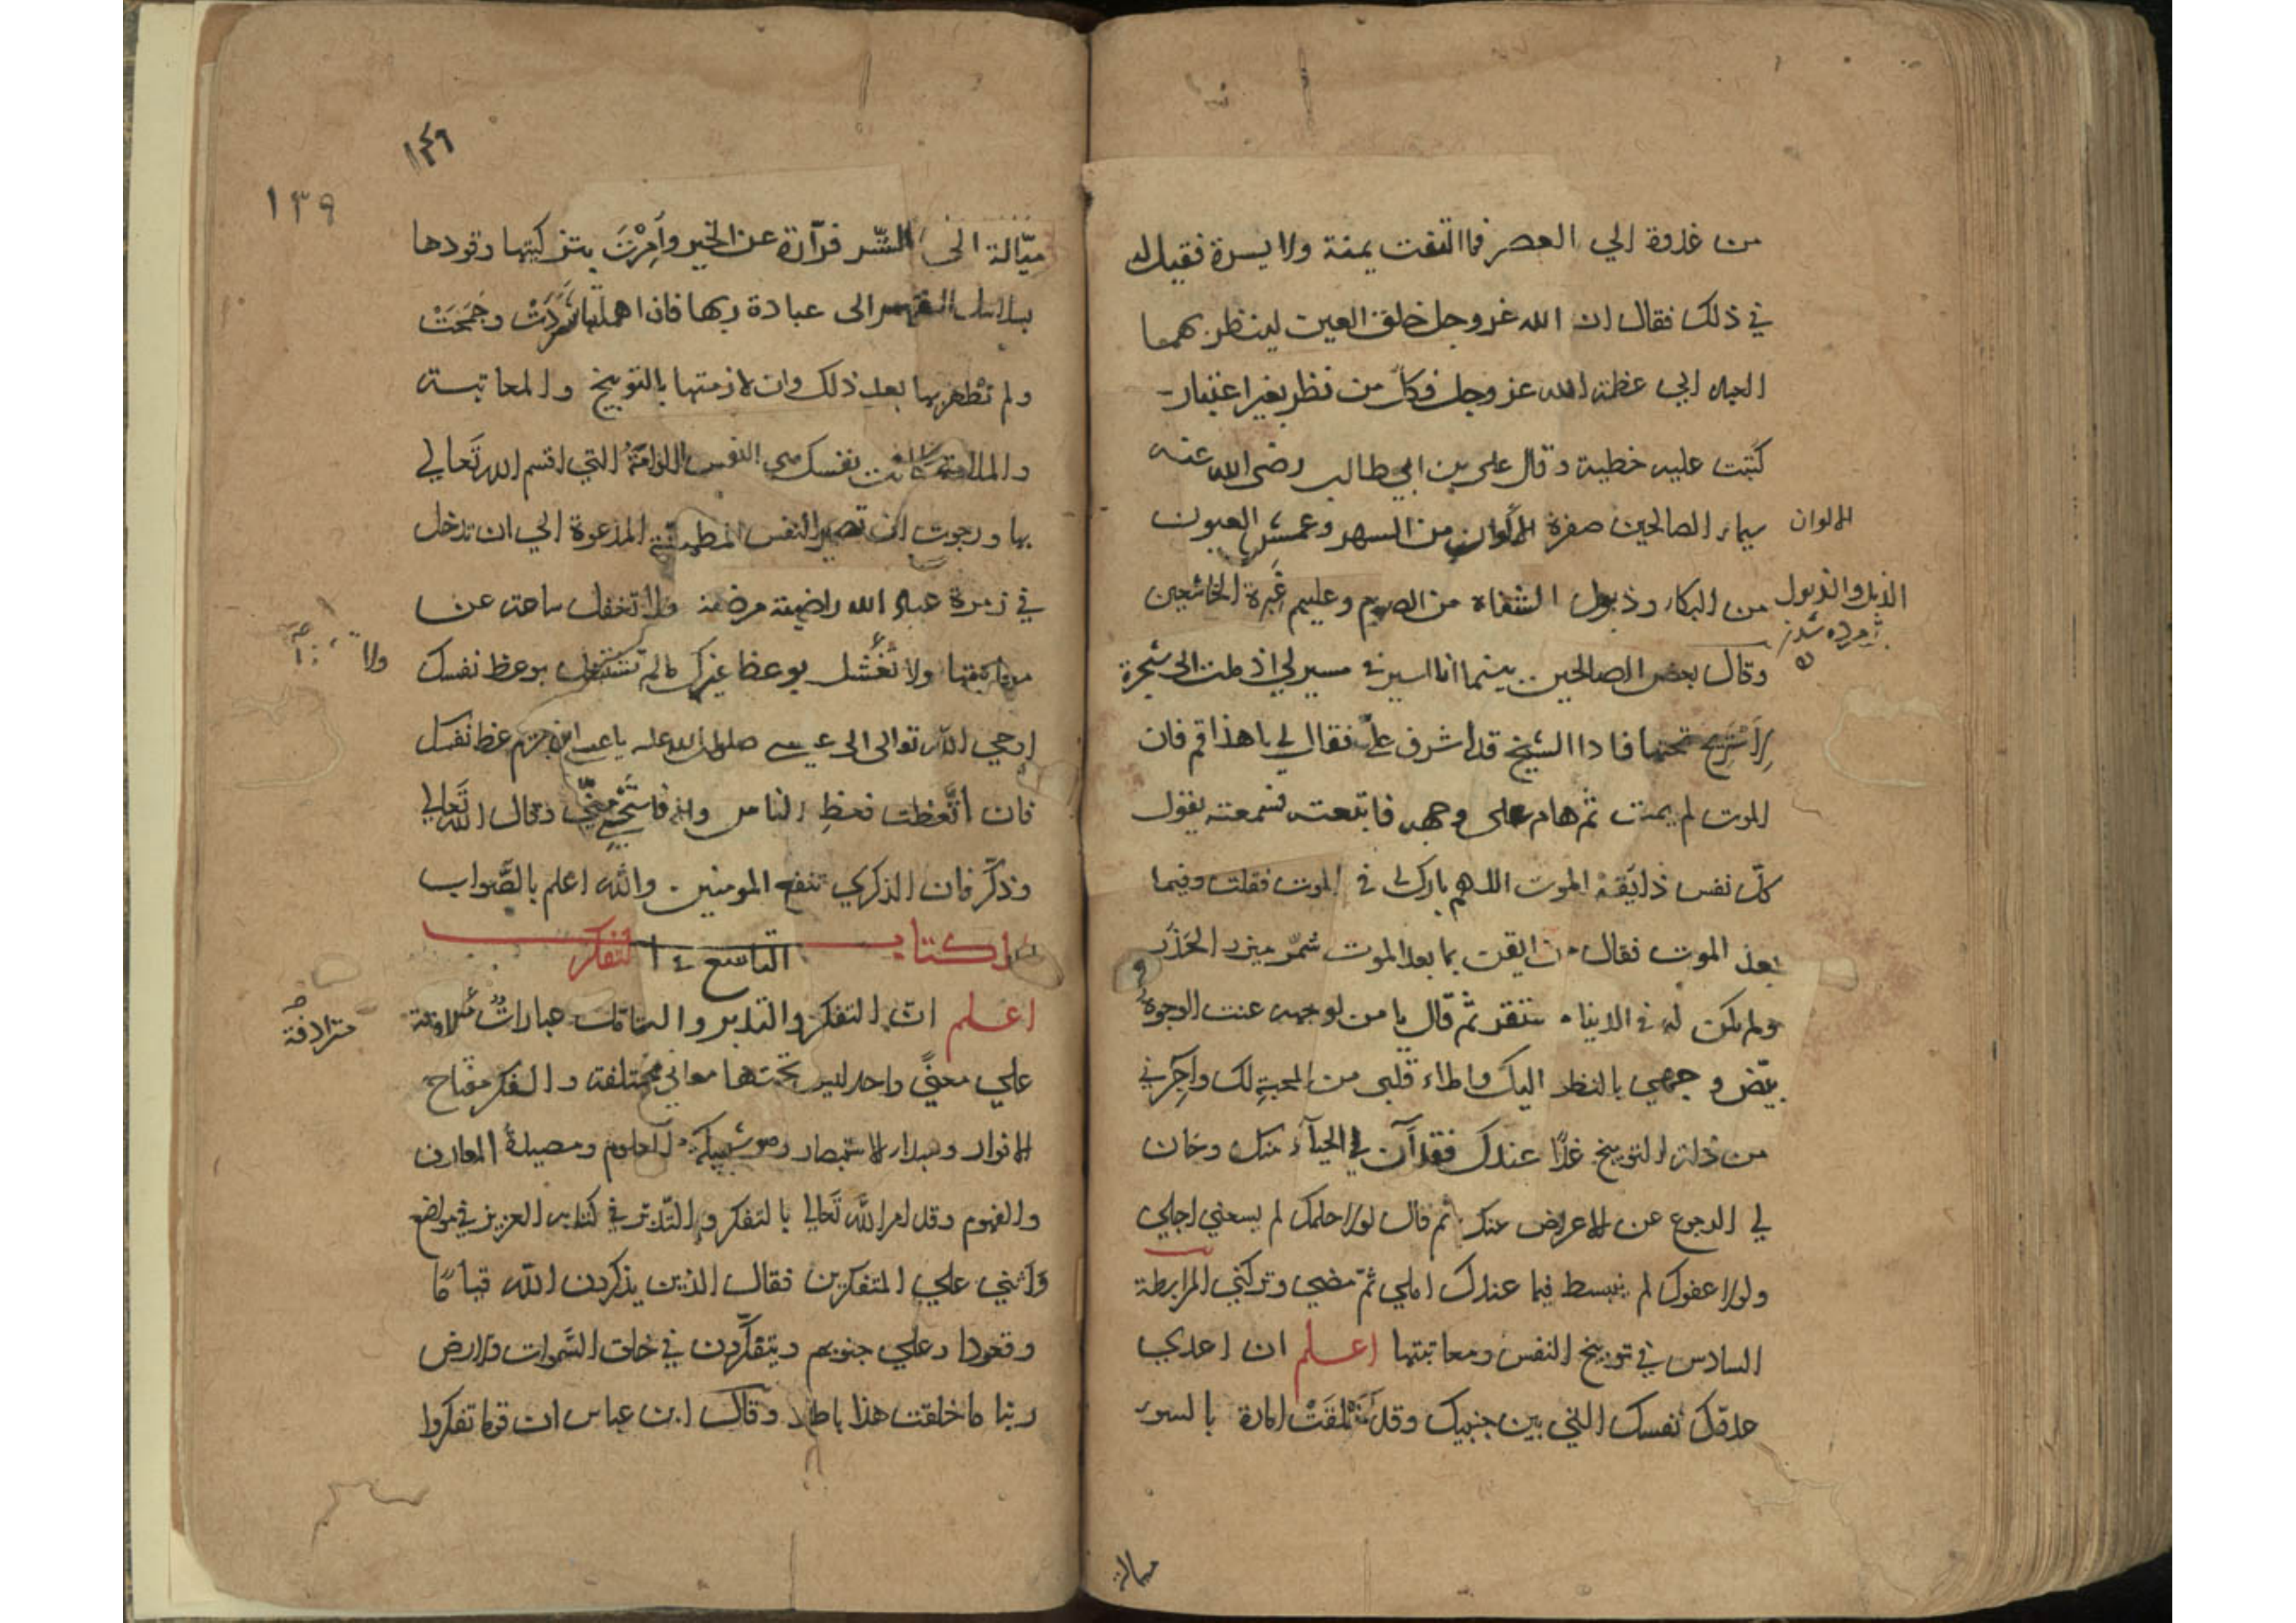 من غدوة الي العصر فما التفت يمنة ولا يسرة فقيل له
في ذلك فقال ان الله عز وجل خلق العين لينظر بهما
العبد الي عظمة الله عز وجل فكل من نظر بغير اعتبار
كتبت عليه خطية وقال علي بن ابي طالب رضي الله عنه
سيماء الصالحين صفرة الالوان من السهر وعمش العيون
الالوان
من البكاء وذبول الشفاة من الصوم وعليهم غبرة الخاشعين
الذبل والذبول
پژمرده شدن
وقال بعض الصالحين بينما انا اسير في مسير لي اذ ملت الى شجرة
لاستريح تحتها فاذا الشيخ قد اشرف علي فقال لي يا هذا قم فان
الموت لم يمت ثم هام على وجهه فاتبعته فسمعته يقول
كل نفس ذايقة الموت اللهم بارك لي في الموت فقلت وفيما
بعد الموت فقال من ايقن بما بعد الموت شمر ميزر الحذر
ولم يكن له في الدنيا مستقر ثم قال يا من لوجهه عنت الوجوه
بيض وجهي بالنظر اليك واملاء قلبي من المحبة لك واجرني
من ذلة التوبيخ غدا عندك فقد آن لي الحياء منك وحان
لي الرجوع عن الاعراض عنك ثم قال لولا حلمك لم يسعني اجلي
ولولا عفوك لم ينبسط فيما عندك املي ثم مضى وتركني المرابطة
السادس في توبيخ النفس ومعاتبتها اعلم ان اعدي
عدوك نفسك التي بين جنبيك وقد خلقت امارة بالسوء
ميالة
١٤٦
١٣٩
ميّالة الى الشر فرّارة عن الخير وأمرت بتزكيتها وقودها
بسلاسل القهر الى عبادة ربها فان اهملتها شردت وجمحت
ولم تظفر بها بعد ذلك وان لازمتها بالتوبيخ والمعاتبة
والملامة كانت نفسك هي النفس اللوامة التي اقسم الله تعالي
بها ورجوت ان تصير النفس المطمئنة المدعوة الي ان تدخل
في زمرة عباد الله راضية مرضية ولا تغفل ساعة عن
ولا
ولا تشتغل بوعظ غيرك مالم تشتغل بوعظ نفسك
اوحي الله تعالى الى عيسى صلوات الله عليه يا عيسى ابن مريم عظ نفسك
فان اتّعظت فعظ الناس والا فاستحي منّي وقال الله تعالي
وذكّر فان الذكري تنفع المومنين والله اعلم بالصّواب
الكتاب التاسع في التفكر
اعلم ان التفكر والتدبر والتامل عبارات مترادفة
مترادفة
علي معنىً واحد ليس تحتها معاني مختلفة والفكر مفتاح
الانوار ومبداء الاستبصار وهو شبكة العلوم ومصيدة المعارف
والفهوم وقد امر الله تعالي بالتفكر والتدبر في كتابه العزيز في مواضع
واثني علي المتفكرين فقال الذين يذكرون الله قياما
وقعودا وعلي جنوبهم ويتفكّرون في خلق السّموات والارض
ربنا ما خلقت هذا باطلا وقال ابن عباس ان قوما تفكروا